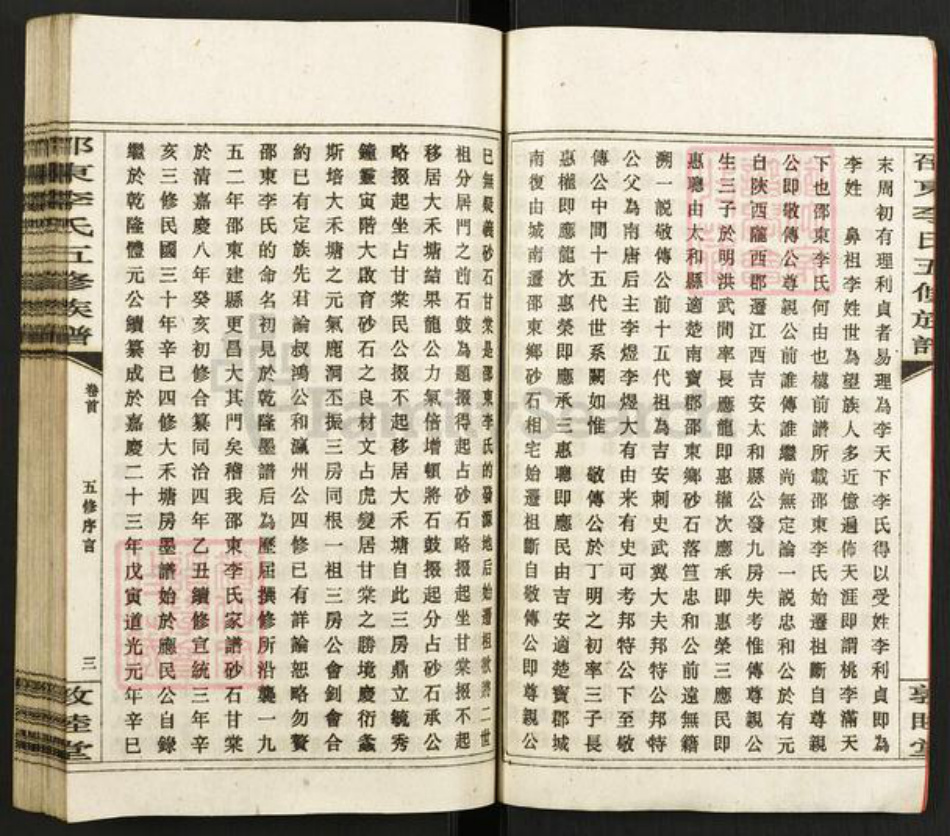 末周初有理利貞者易理為李天下李氏得以受姓李利貞即為
李姓 鼻祖李姓世為望族人多近億遍佈天涯即謂桃李滿天
下也邵東李氏何由也據前譜所載邵東李氏始遷祖斷自尊親
公即敬傳公公尊親公前誰傳誰繼尚無定論一説忠和公於有元
自陝西隴西郡遷江西吉安太和縣公發九房失考惟傳尊親公
生三子於明洪武間率長應龍即惠權次應承即惠榮三應民即
惠聰由太和縣適楚南寶郡邵東鄉砂石落笪忠和公前遠無籍
溯一説敬傳公前十五代祖為吉安刺史武翼大夫邦特公邦特
公父為南唐后主李煜李煜大有由来有史可考邦特公下至敬
傳公中間十五代世系闕如惟 敬傳公於丁明之初率三子長
惠權即應龍次惠榮即應承三惠聰即應民由吉安適楚寶郡城
南復由城南遷邵東鄉砂石相宅始遷祖斷自敬傳公即尊親公
已無疑義砂石甘棠是邵東李氏的發源地后始遷祖
二世
祖分居門之前石鼓為題掇得起占砂石略掇起坐甘棠掇不起
移居大禾塘結果龍公力氣倍增頓將石鼓掇起分占砂石承公
略掇起坐占甘棠民公掇不起移居大禾塘自此三房鼎立毓秀
鐘靈寅階大啟育砂石之良材文占虎變居甘棠之勝境慶衍螽
斯培大禾塘之元氣鹿洞丕振三房同根一祖三房公會釗會合
約已有定族先君論叔鴻公和瀛州公四修已有詳論恕略勿贅
邵東李氏的命名初見於乾隆墨譜后為歷屆撰修所沿襲一九
五二年邵東建縣更昌大其門矣稽我邵東李氏家譜砂石甘棠
於清嘉慶八年癸亥初修合纂同治四年乙丑續修宣統三年辛
亥三修民國三十年辛已四修大禾塘房墨譜始於應民公自錄
繼於乾隆體元公續纂成於嘉慶二十三年戊寅道光元年辛巳
邵東李氏五修族譜
卷首
五修序言
三
敦睦堂